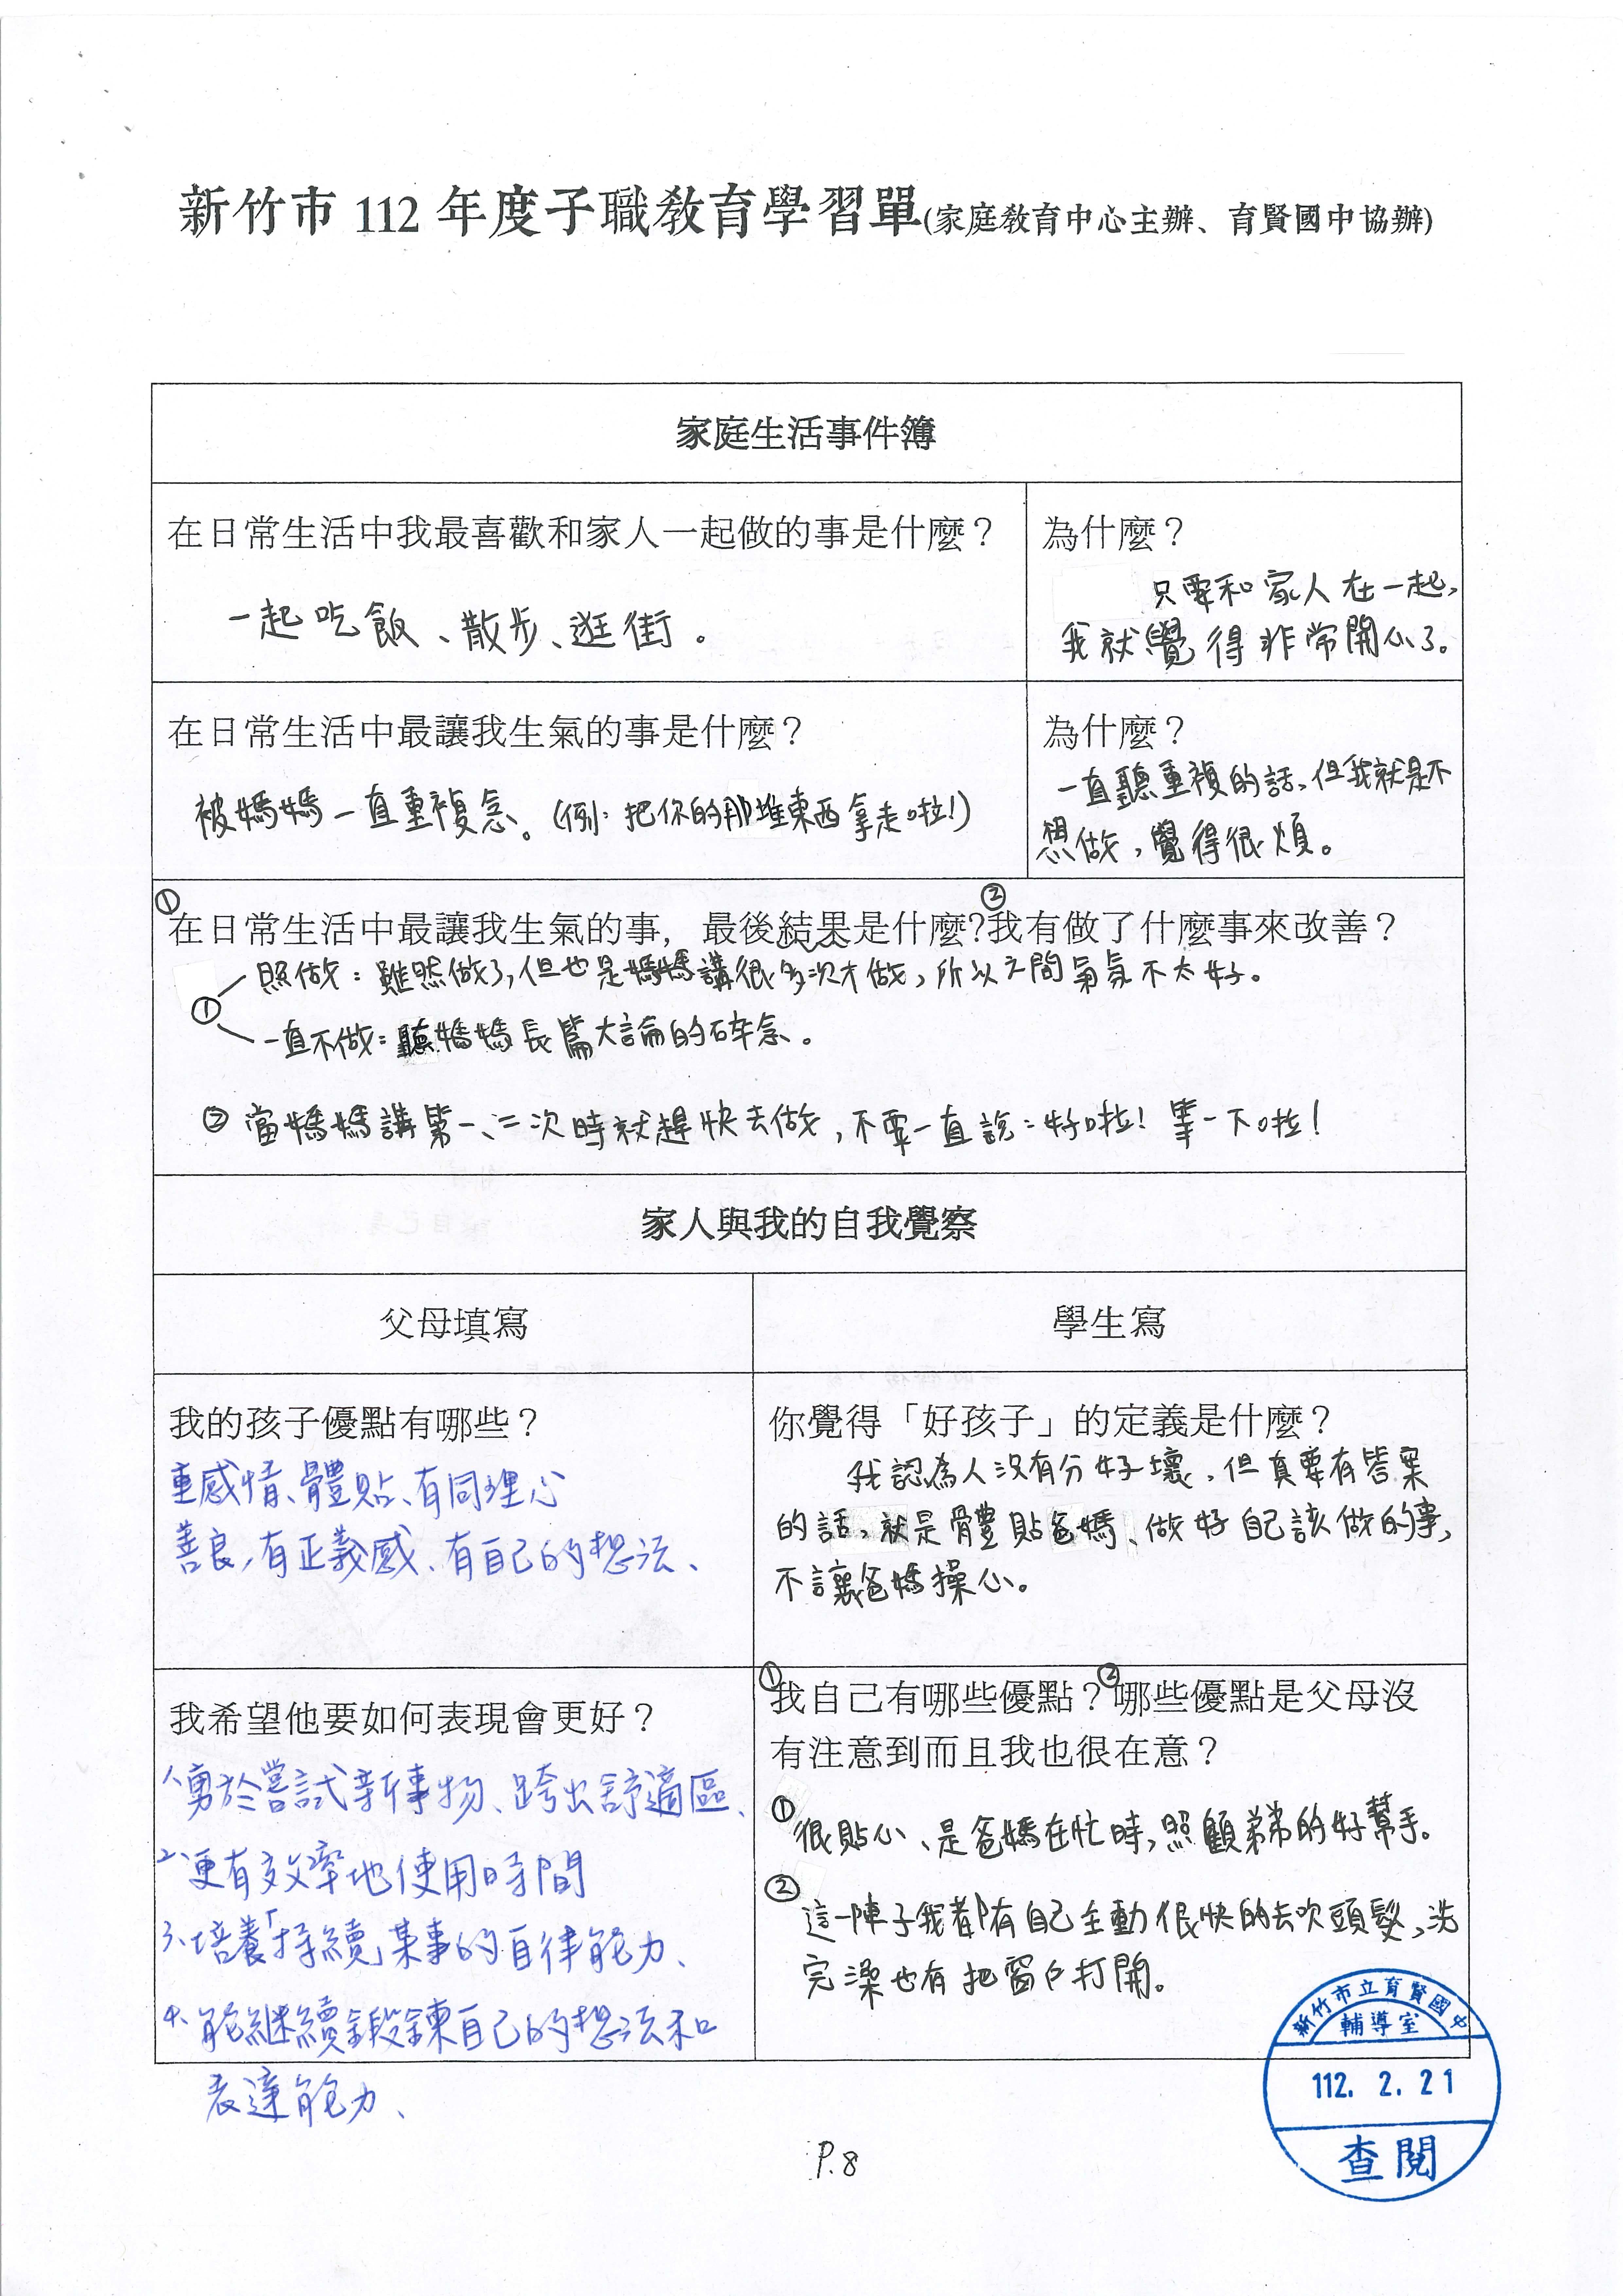 新竹市 112 年度子職教育學習單(家庭教育中心主辦、育賢國中協辦)
家庭生活事件簿
在日常生活中我最喜歡和家人一起做的事是什麼？
一起吃飯、散步、逛街。
為什麼？
只要和家人在一起，
我就覺得非常開心了。
在日常生活中最讓我生氣的事是什麼？
被媽媽一直重複念。(例：把你的那堆東西拿走啦!)
為什麼？
一直聽重複的話，但我就是不
想做，覺得很煩。
① ②
在日常生活中最讓我生氣的事, 最後結果是什麼?我有做了什麼事來改善？
① 照做：雖然做了，但也是媽媽講很多次才做，所以之間氣氛不太好。
一直不做：聽媽媽長篇大論的碎念。
② 當媽媽講第一、二次時就趕快去做，不要一直說：好啦! 等一下啦!
家人與我的自我覺察
父母填寫
學生寫
我的孩子優點有哪些？
重感情、體貼、有同理心
善良，有正義感、有自己的想法、
你覺得「好孩子」的定義是什麼？
我認為人沒有分好壞，但真要有答案
的話，就是體貼爸媽、做好自己該做的事，
不讓爸媽操心。
我希望他要如何表現會更好？
1、勇於嘗試新事物、跨出舒適區、
2、更有效率地使用時間
3、培養「持續」某事的自律能力、
4、能繼續鍛鍊自己的想法和
表達能力、
① ②
我自己有哪些優點？哪些優點是父母沒
有注意到而且我也很在意？
① 很貼心、是爸媽在忙時，照顧弟弟的好幫手。
② 這一陣子我都有自己主動很快的去吹頭髮，洗
完澡也有把窗戶打開。
新竹市立育賢國中
輔導室
112. 2. 21
查閱
P.8